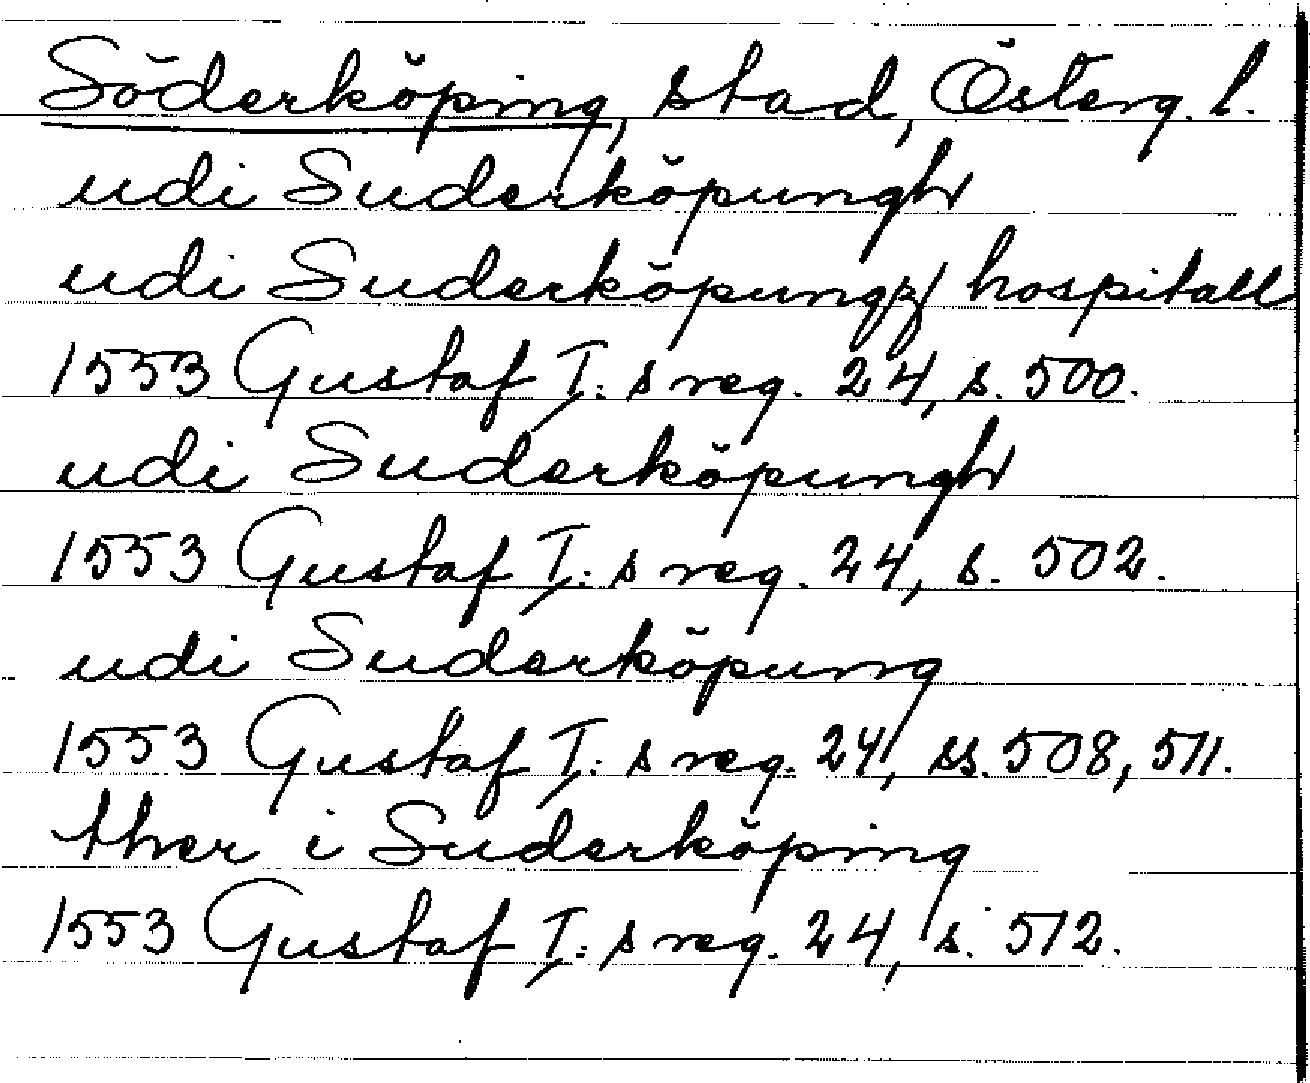 Söderköping, stad, Österg. l.
udi Suderköpungh
udi Suderköpungz hospitall
1553 Gustaf I:s reg. 24, s. 500.
udi Suderköpungh
1553 Gustaf I:s reg. 24, s. 502.
udi Suderköpung
1553 Gustaf I:s reg. 24, ss. 508, 511.
ther i Suderköping
1553 Gustaf I:s reg. 24, s. 512.